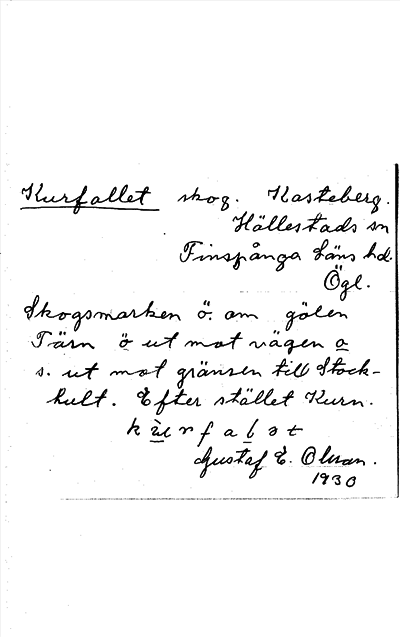 Kurfallet skog. Kasteberg.
Hällestads sn
Finspånga läns hd.
Ögl.
Skogsmarken ö. om gölen
Tärn ö ut mot vägen o
s. ut mot gränsen till Stock-
hult. Efter stället Kurn.
Gustaf E. Olsson.
1930